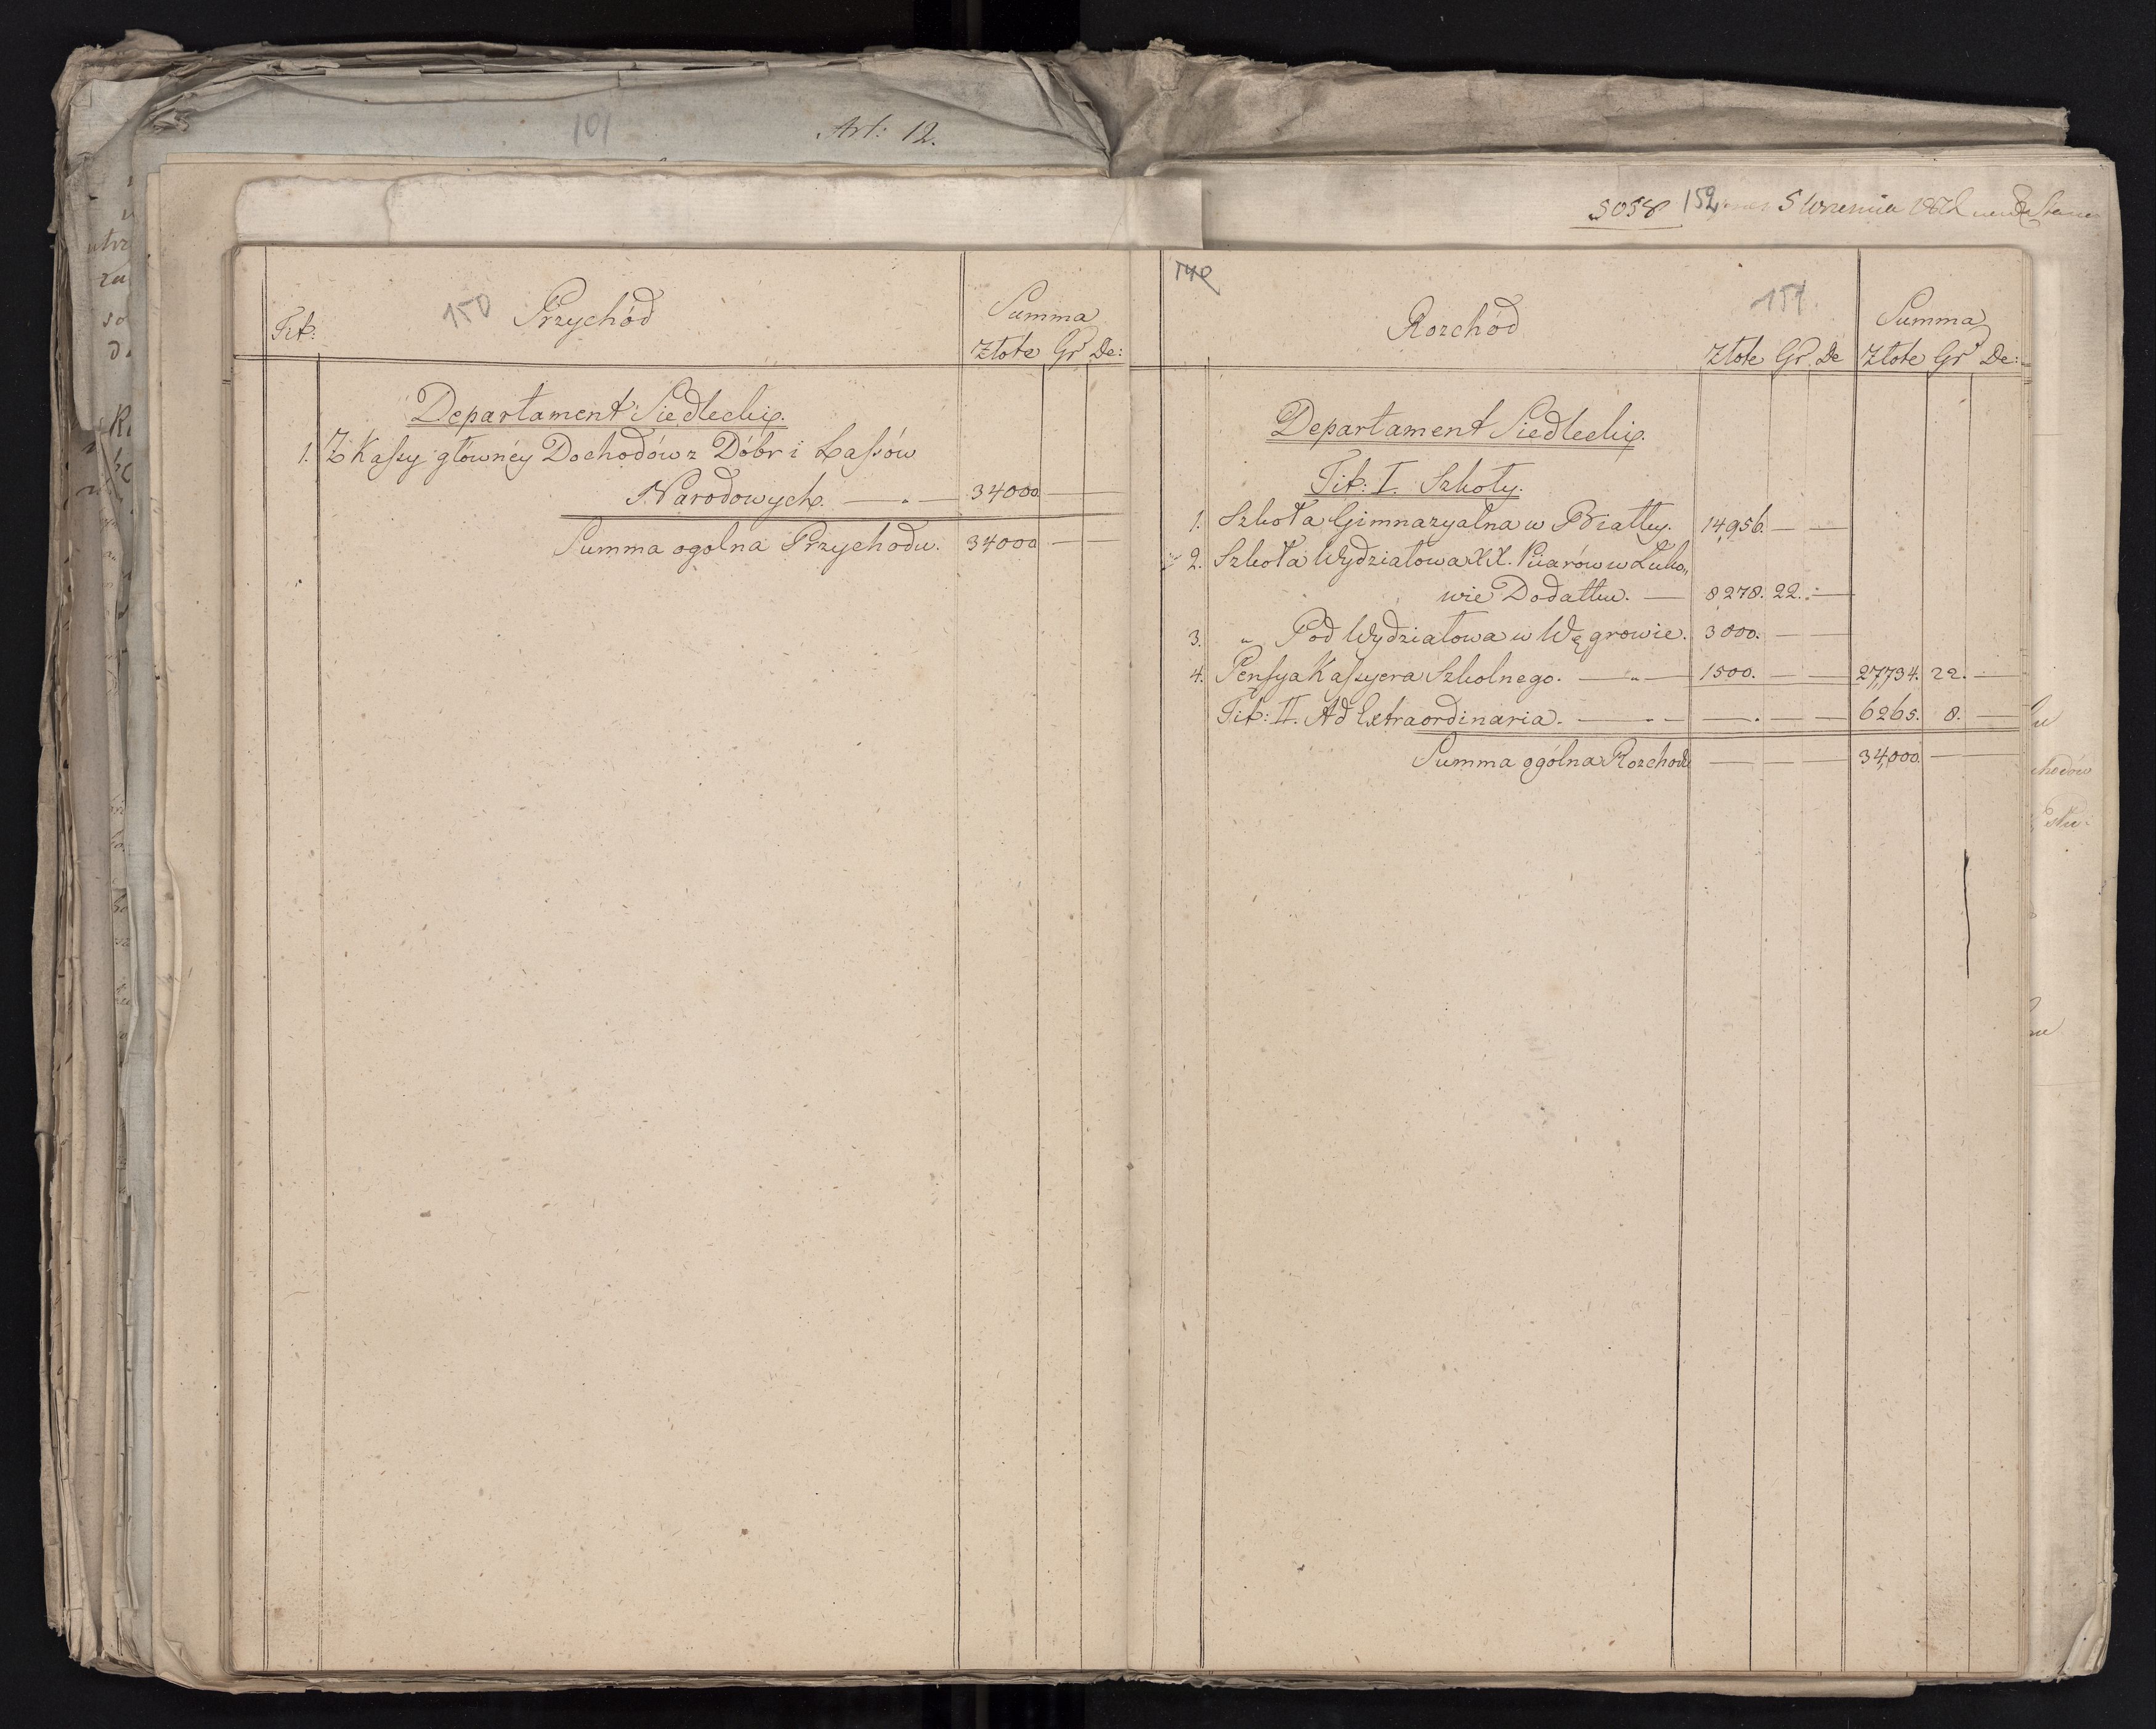 101
Art: 12.
5058 152 5 Września
Tit:
150
Przychód
Summa
Złote Gr De:
Departament Siedlecki.
1. Z Kassy główney Dochodów z Dóbr i Lassów
Narodowych. — „ — 34000 — —
Summa ogolna Przychodu. 34000 — —
Rozchód
151.
Summa
Złote Gr De Złote Gr De:
Departament Siedlecki.
Tit: I. Szkoły.
1. Szkoła Gimnazyalna w Białły. 14,956. — —
2. Szkoła Wydziałowa XX. Piiarów w Łuko„
wie Dodatku. — 8278. 22. —
3. „ Pod Wydziałowa w Węgrowie. 3000. — —
4. Pensya Kassyera Szkolnego. — „ — 1500. — — 27,734. 22. —
Tit: II. Ad Extraordinaria. — — — — — 6265. 8. —
Summa ogólna Rozchodu — — — 34,000. — —